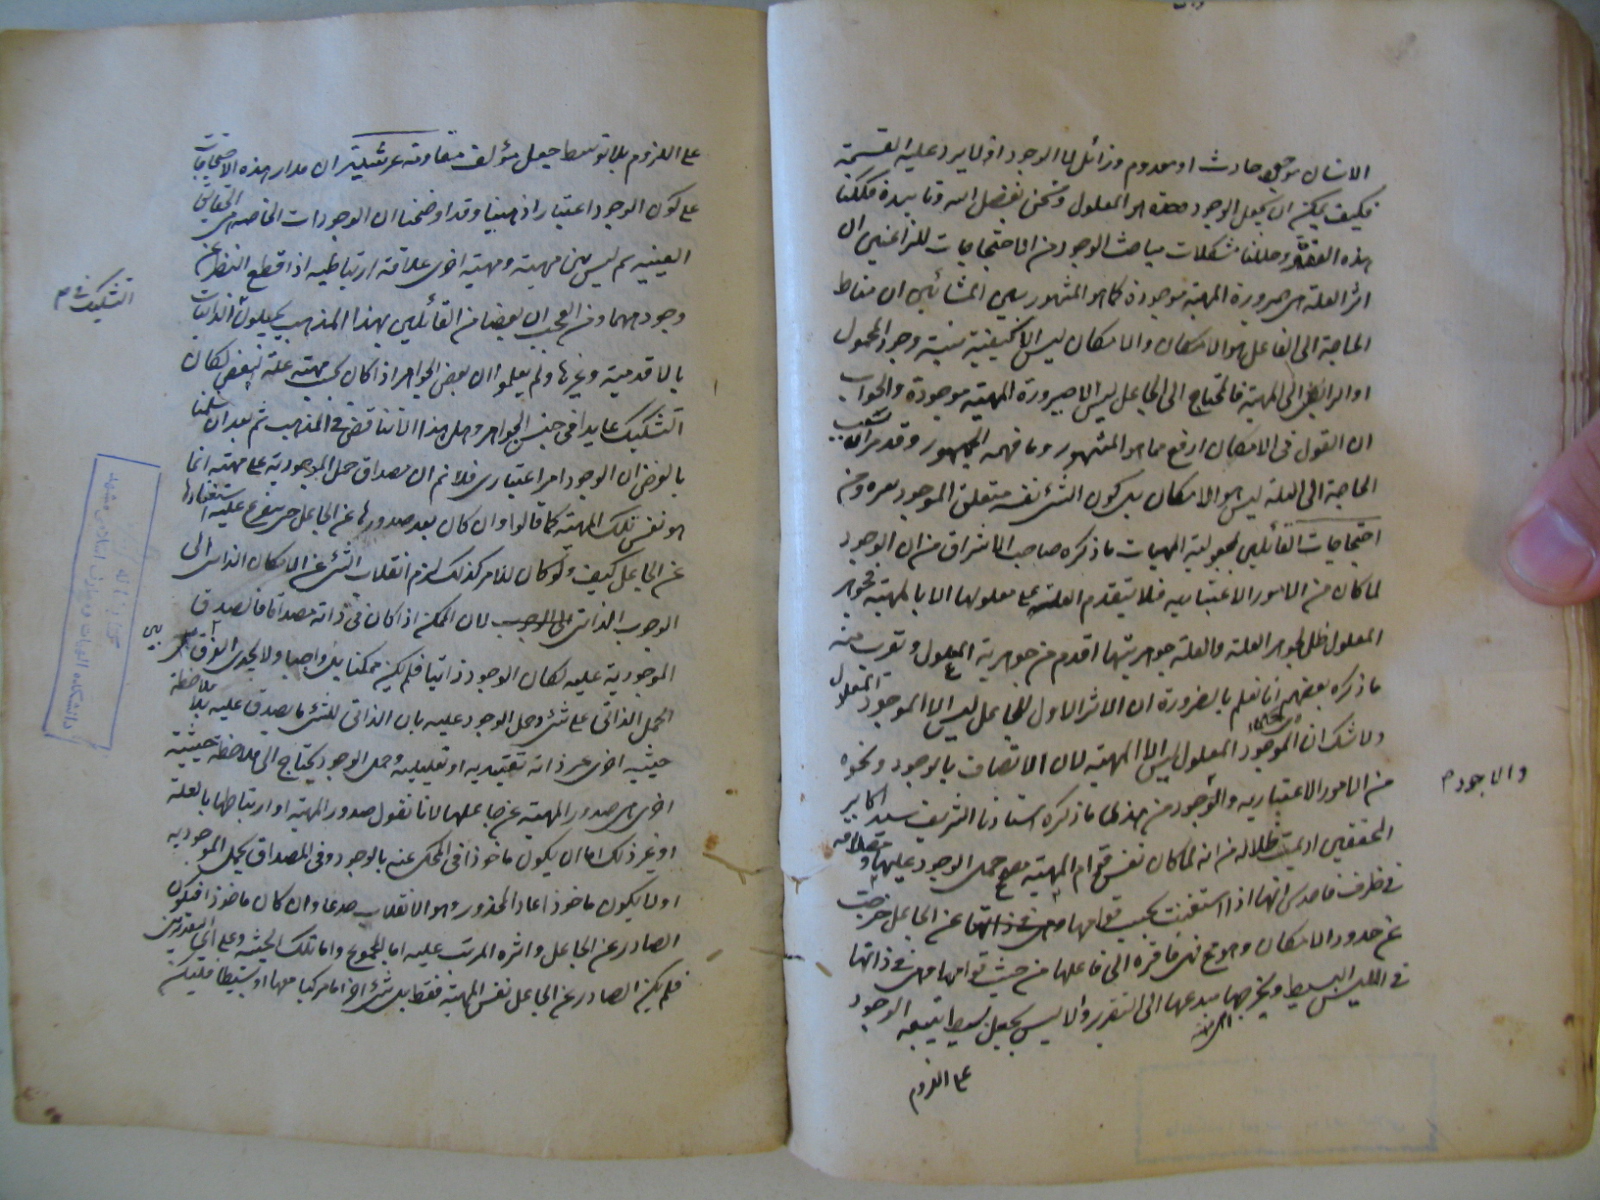 الانسان موجود حادث او معدوم وزائل بما الوجود اذ لا يرد عليه القسمة
فكيف يمكن ان يجعل الوجود هو المعلول ونحن بفضل الله وتاييده فككنا
هذه العقدة وحللنا مشكلات مباحث الوجود من الاحتجاجات للزاعمين ان
اثر العلة هي صيرورة المهية موجودة كما هو المشهور بين المشائين ان مناط
الحاجة الى الفاعل هو الامكان والامكان ليس الا كيفية نسبة وجود المحمول
او الرابطى الى المهية فالمحتاج الى الجاعل ليس الا صيرورة المهية موجودة والجواب
ان القول فى الامكان ارفع مما هو المشهور وما فهمه الجمهور وقد مر ان سبب
الحاجة الى العلة ليس هو الامكان بل كون الشئ نفسه متعلق الوجود بغيره ومن
احتجاجات القائلين بمجعولية المهيات ما ذكره صاحب الاشراق من ان الوجود
لما كان من الامور الاعتبارية فلا يتقدم العلة على معلولها الا بالمهية فجوهر
المعلول ظل لجوهر العلة والعلة جوهريتها اقدم من جوهرية المعلول وتقرب منه
ما ذكره بعضهم انا نعلم بالضرورة ان الاثر الاول للجاعل ليس الا الموجود المعلول
ولا شك ان الموجود المعلول ليس الا المهية لان الاتصاف بالوجود ونحوه
من الامور الاعتبارية والوجود من هذا ما ذكره استاذنا الشريف سيد اكابر
والاجود م
المحققين اديمت ظلاله من انه لما كان نفس قوام المهية مصحح حمل الوجود عليها ومصداقه
فى ظرف ما حدس انها اذا استغنت بحسب قوامها ومن ذاتها عن الجاعل خرجت
عن حدود الامكان وهو بح فهى فاقرة الى فاعلها من حيث قوامها وهى فى ذاتها
فى الليس البسيط ويخرجها مبدعها الى التقرر والايس بجعل بسيط يتبعه الوجود
على اللزوم
على اللزوم بلا توسط جعل مؤلف مقاومة عرشية ان مدار هذه الاحتجاجات
على كون الوجود اعتبارا ذهنيا وقد اوضحنا ان الوجودات الخاصة هى الحقايق
العينية ثم ليس بين مهية ومهية اخرى علاقة ارتباطية اذا قطع النظر عن
وجودهما ومن العجب ان بعضا من القائلين بهذا المذهب يحيلون الذاتيات
التشكيك فى م
بالاقدمية وغيرها ولم يعلموا ان بعض الجواهر اذا كان بحسب مهيته علة لبعض لكان
التشكيك عايدا فى جنس الجواهر وهل هذا الا تناقض فى المذهب ثم بعد ان سلمنا
بالفرض ان الوجود امر اعتبارى فلا نم ان مصداق حمل الموجودية على مهية انما
هو نفس تلك المهية كما قالوا وان كان بعد صدورها عن الجاعل حتى يتفرع عليه استغناؤها
عن الجاعل كيف ولو كان الامر كذلك لزم انقلاب الشئ عن الامكان الذاتى الى
الوجوب الذاتى لان الممكن اذا كان فى ذاته مصداقا لصدق
الموجودية عليه لكان الوجود ذاتيا فلم يكن ممكنا بل واجبا ولا يجدى الفرق بين
الحمل الذاتى على شئ وحمل الوجود عليه بان الذاتى للشئ ما يصدق عليه بلا ملاحظة
حيثية اخرى غير ذاته تقييدية او تعليلية وحمل الوجود يحتاج الى ملاحظة حيثية
اخرى هى صدور المهية عن جاعلها لانا نقول صدور المهية او ارتباطها بالعلة
او غير ذلك اما ان يكون ماخوذا فى المحكى عنه بالوجود وفى المصداق لحمل الموجودية
او لا يكون ماخوذا عاد المحذور وهو الانقلاب جدعا وان كان ماخوذا فيكون
الصادر عن الجاعل واثره المرتب عليه اما المجموع واما تلك الحيثية وعلى اى التقديرين
فلم يكن الصادر عن الجاعل نفس المهية فقط بل شئ اخر اما مركبا معها او بسيطا فليكن